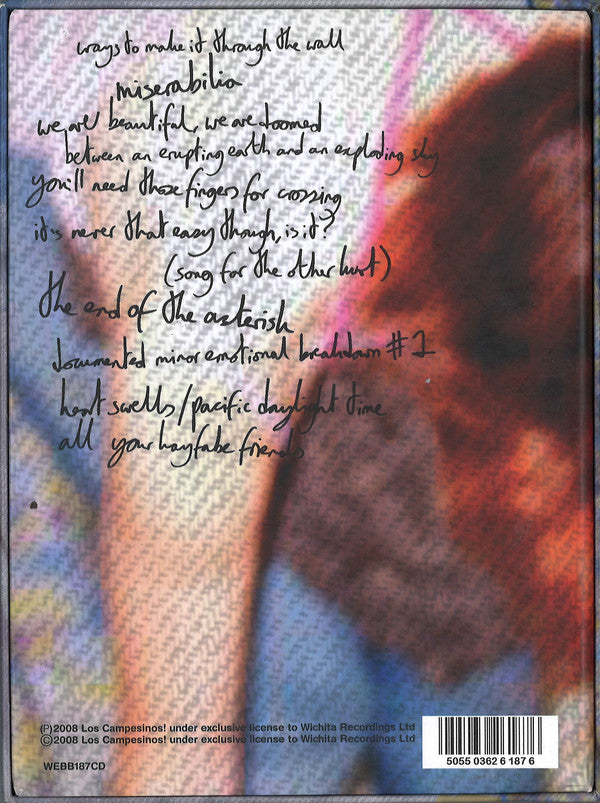 ways to make it through the wall
miserabilia
we are beautiful, we are doomed
between an erupting earth and an exploding sky
you'll need those fingers for crossing
it's never that easy though, is it?
(song for the other kurt)
the end of the asterisk
documented minor emotional breakdown #1
heart swells/pacific daylight time
all your kayfabe friends
(P)2008 Los Campesinos! under exclusive license to Wichita Recordings Ltd
©2008 Los Campesinos! under exclusive license to Wichita Recordings Ltd
WEBB187CD
5055 0362 6 187 6